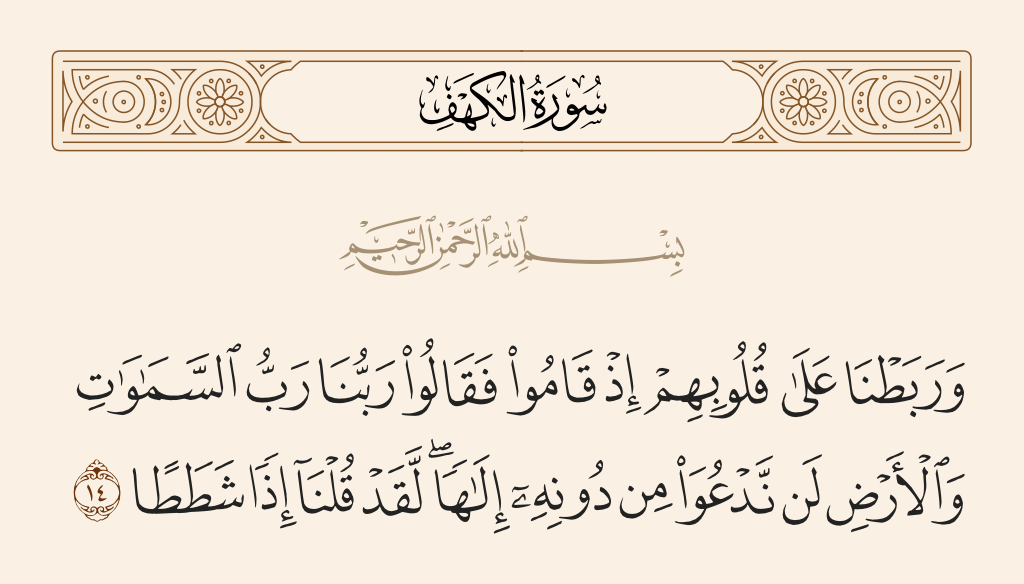 سُورَةُ الكَهْفِ
بِسْمِ ٱللَّهِ ٱلرَّحْمَٰنِ ٱلرَّحِيمِ
وَرَبَطْنَا عَلَىٰ قُلُوبِهِمْ إِذْ قَامُوا۟ فَقَالُوا۟ رَبُّنَا رَبُّ ٱلسَّمَٰوَٰتِ
وَٱلْأَرْضِ لَن نَّدْعُوَا۟ مِن دُونِهِۦٓ إِلَٰهًا ۖ لَّقَدْ قُلْنَآ إِذًا شَطَطًا ١٤